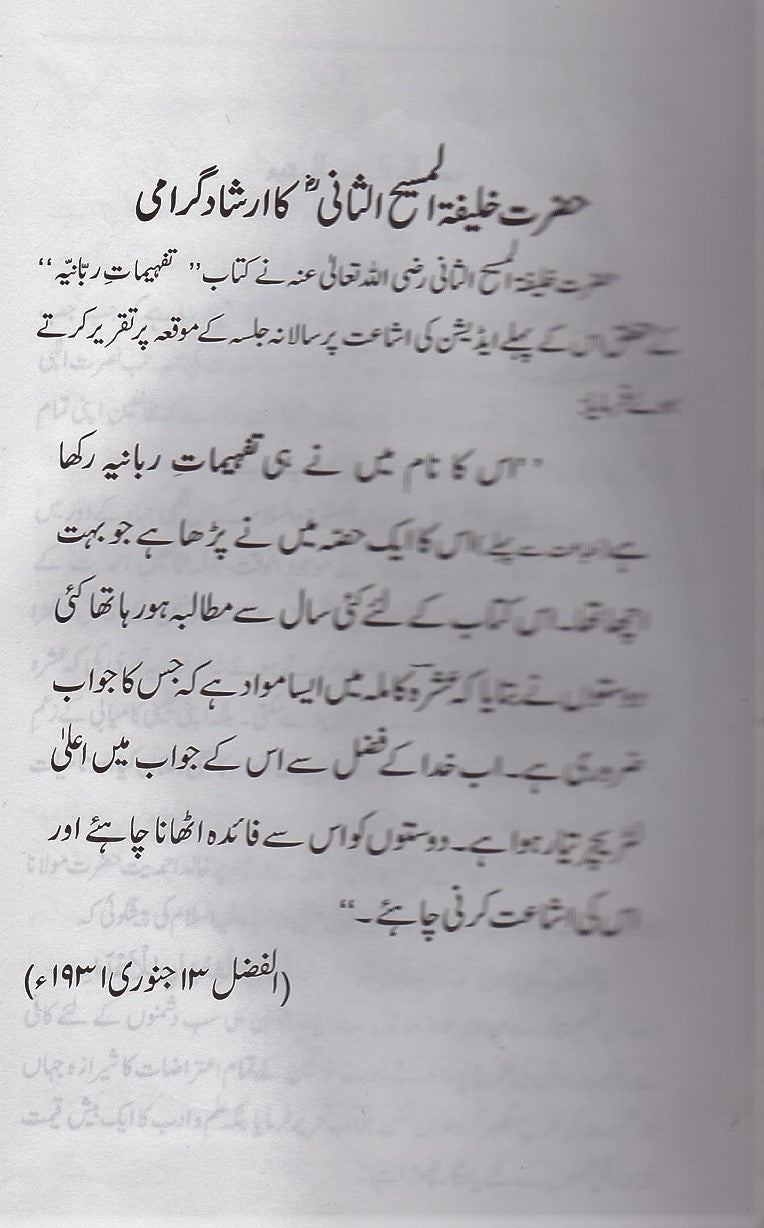 حضرت خلیفۃ المسیح الثانیؓ کا ارشاد گرامی
حضرت خلیفۃ المسیح الثانی رضی اللہ تعالیٰ عنہ نے کتاب ’’ تفہیماتِ ربّانیّہ ‘‘
کے متعلق اس کے پہلے ایڈیشن کی اشاعت پر سالانہ جلسہ کے موقعہ پر تقریر کرتے
ہوئے فرمایا:
’’اس کا نام میں نے ہی تفہیماتِ ربانیہ رکھا
ہے (طباعت سے پہلے) اس کا ایک حصّہ میں نے پڑھا ہے جو بہت
اچھا تھا۔ اس کتاب کے لئے کئی سال سے مطالبہ ہو رہا تھا کئی
دوستوں نے بتایا کہ عشرہ کاملہ میں ایسا مواد ہے کہ جس کا جواب
ضروری ہے۔ اب خدا کے فضل سے اس کے جواب میں اعلیٰ
لٹریچر تیار ہوا ہے۔ دوستوں کو اس سے فائدہ اٹھانا چاہئے اور
اس کی اشاعت کرنی چاہئے۔‘‘
(الفضل ۱۳ جنوری ۱۹۳۱ء)